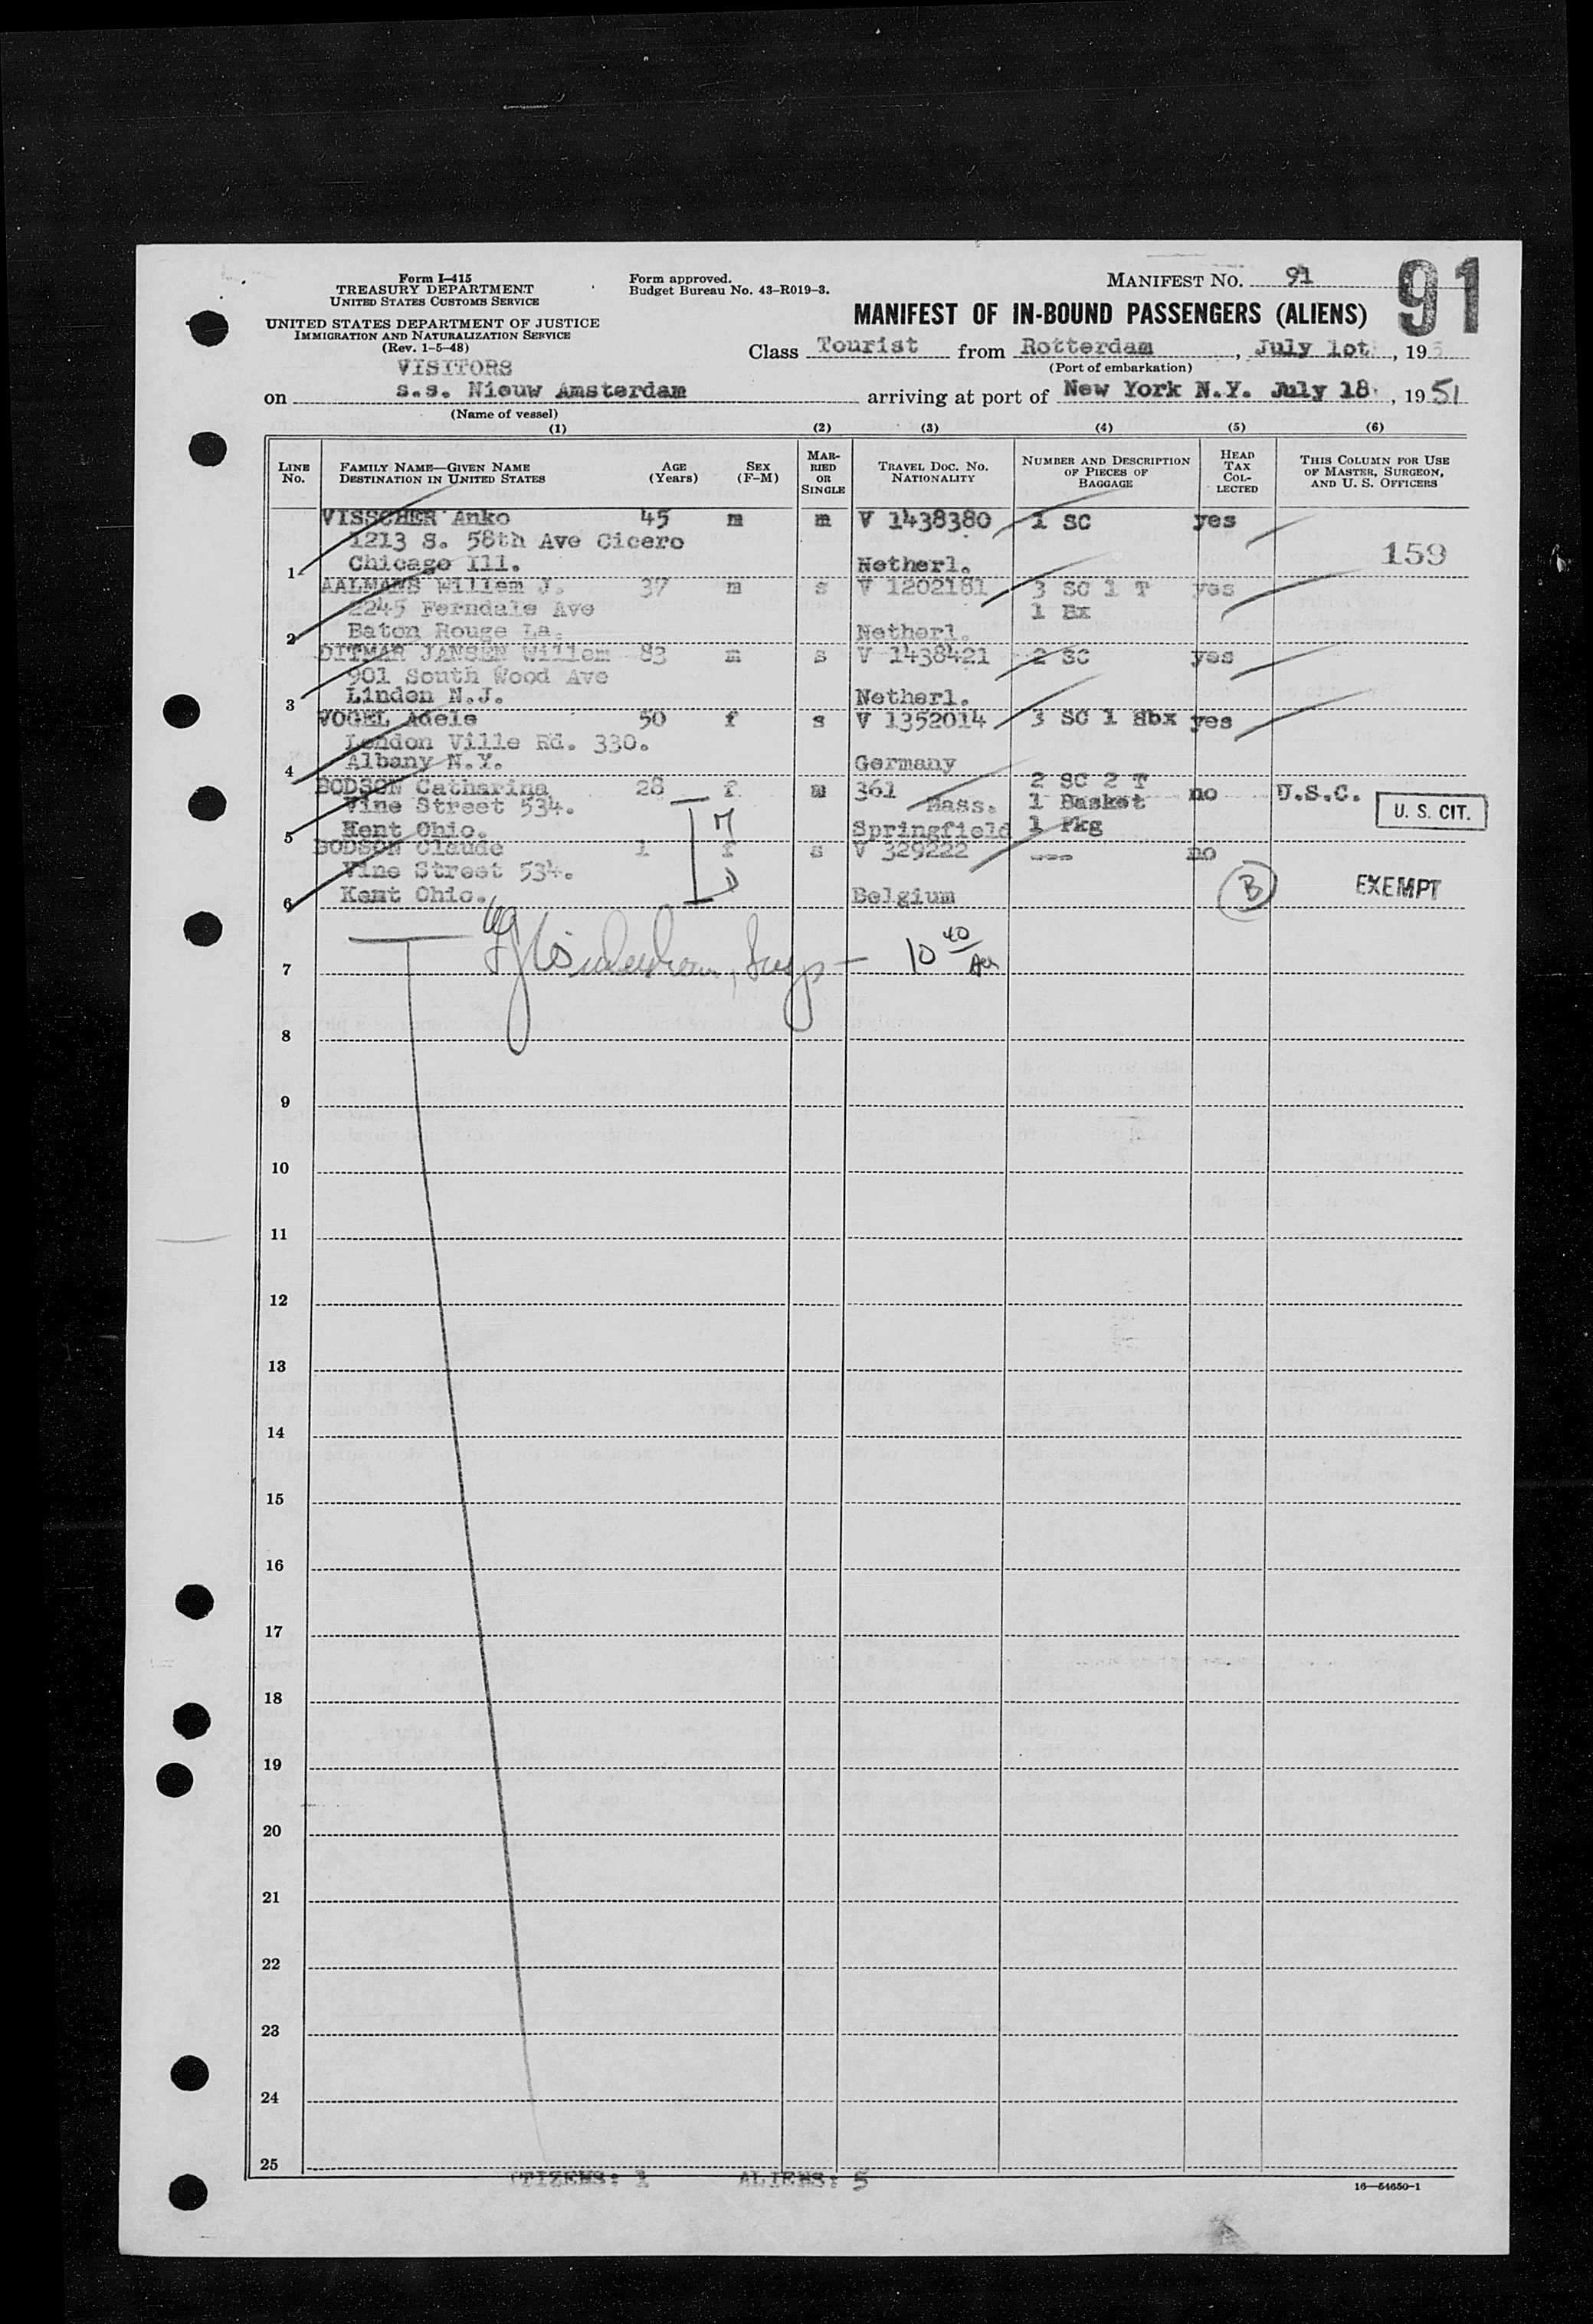 Form I-415
TREASURY DEPARTMENT
UNITED STATES CUSTOMS SERVICE
UNITED STATES DEPARTMENT OF JUSTICE
IMMIGRATION AND NATURALIZATION SERVICE
(Rev. 1-5-48)
Form approved.
Budget Bureau No. 43-R019-3.
MANIFEST NO. 91
91
MANIFEST OF IN-BOUND PASSENGERS (ALIENS)
Class Tourist from Rotterdam, July 10t, 195
(Port of embarkation)
VISITORS
on s.s. Nieuw Amsterdam arriving at port of New York N.Y. July 18, 1951
(Name of vessel)
(1) (2) (3) (4) (5) (6)
LINE NO. FAMILY NAME—GIVEN NAME DESTINATION IN UNITED STATES AGE (Years) SEX (F-M) MARRIED OR SINGLE TRAVEL DOC. NO. NATIONALITY NUMBER AND DESCRIPTION OF PIECES OF BAGGAGE HEAD TAX COLLECTED THIS COLUMN FOR USE OF MASTER, SURGEON, AND U. S. OFFICERS
VISSCHER Anko 45 m m V 1438380 1 SC yes
1213 S. 58th Ave Cicero
1 Chicago Ill. Netherl. 159
AALMANS Willem J. 37 m s V 1202181 3 SC 1 T yes
2245 Ferndale Ave 1 Bx
2 Baton Rouge La. Netherl.
DITMAR JANSEN Willem 83 m s V 1438421 2 SC yes
901 South Wood Ave
3 Linden N.J. Netherl.
VOGEL Adele 50 f s V 1352014 3 SC 1 Hbx yes
London Ville Rd. 330.
4 Albany N.Y. Germany
DODSON Catharina 28 f m 361 2 SC 2 T no U.S.C.
Vine Street 534. Mass. 1 Basket
5 Kent Ohio. Springfield 1 Pkg U. S. CIT.
DODSON Claude 1 f s V 329222 --- no
Vine Street 534.
6 Kent Ohio. Belgium B EXEMPT
7 10 40 AM
8
9
10
11
12
13
14
15
16
17
18
19
20
21
22
23
24
25
CITIZENS: 1 ALIENS: 5
16—54650-1